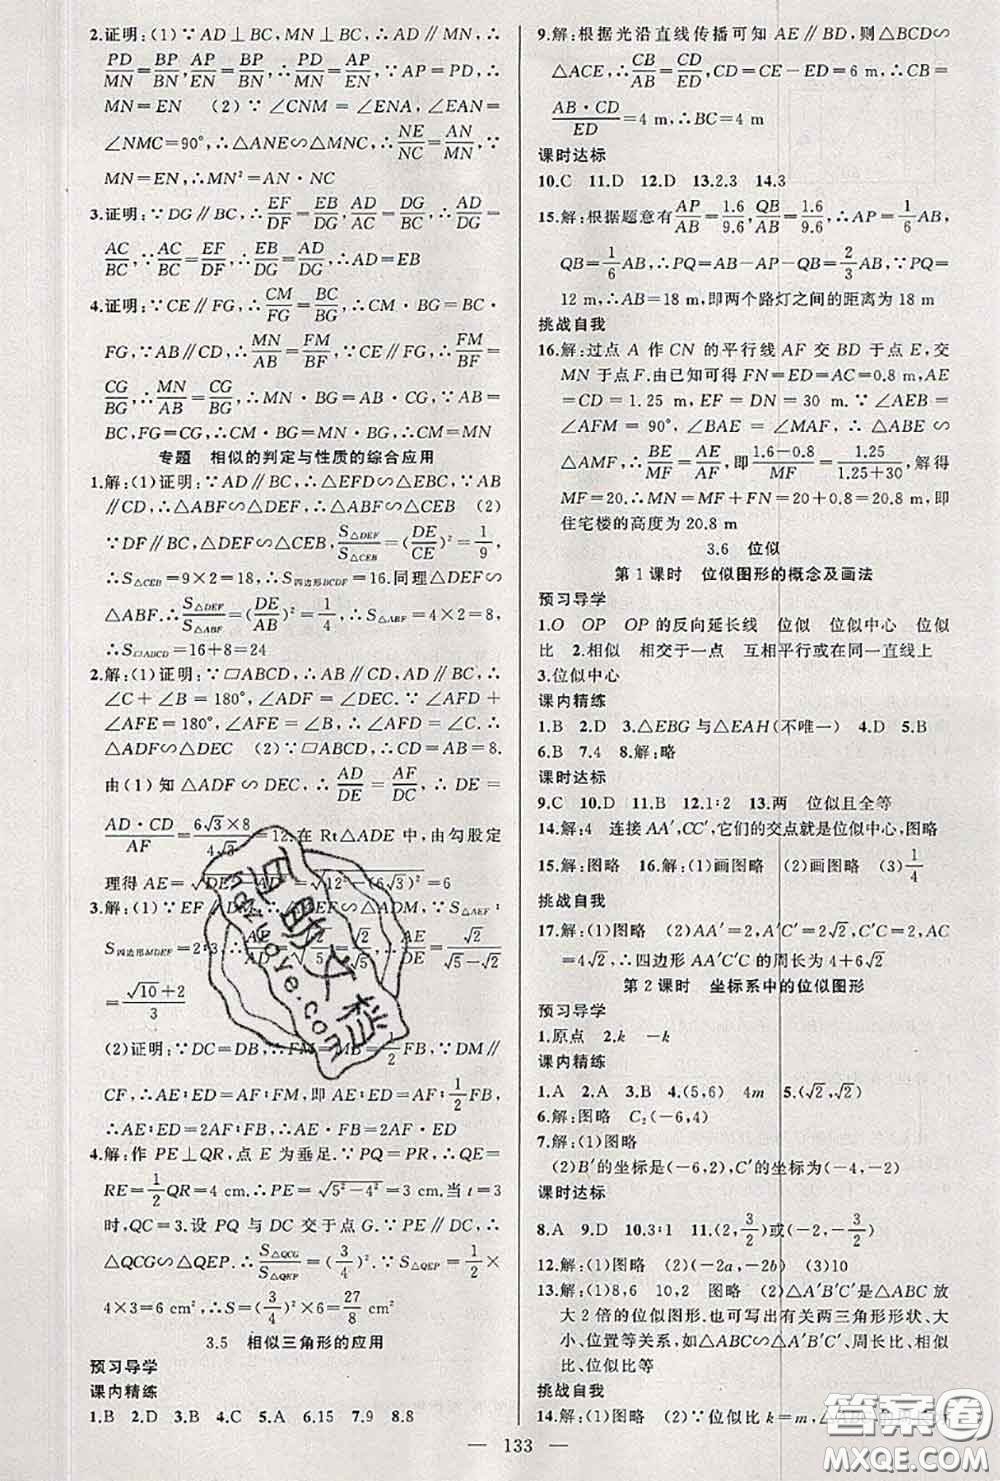 2.证明:(1)∵AD⊥BC,MN⊥BC,∴AD∥MN,∴
PD/MN=BP/BN,AP/EN=BP/BN,∴PD/MN=AP/EN,∵AP=PD,∴
MN=EN (2)∵∠CNM=∠ENA,∠EAN=
∠NMC=90°,∴△ANE∽△MNC,∴NE/NC=AN/MN,∵
MN=EN,∴MN²=AN·NC
3.证明:∵DG∥BC,∴EF/DF=EB/DG,AD/AC=DG/BC,∴AD/DG=
AC/BC,∵AC/BC=EF/DF,∴EB/DG=AD/DG,∴AD=EB
4.证明:∵CE∥FG,∴CM/FG=BC/BG,∴CM·BG=BC·
FG,∵AB∥CD,∴MN/AB=FM/BF,∵CE∥FG,∴FM/BF=
CG/BG,∴MN/AB=CG/BG,∴MN·BG=AB·CG,∵AB=
BC,FG=CG,∴CM·BG=MN·BG,∴CM=MN
专题 相似的判定与性质的综合应用
1.解:(1)证明:∵AD∥BC,∴△EFD∽△EBC,∵AB
∥CD,∴△ABF∽△DEF,∴△ABF∽△CEB (2)
∵DF∥BC,△DEF∽△CEB,∴S△DEF/S△CEB=(DE/CE)²=1/9,
∴S△CEB=9×2=18,∴S四边形BCDF=16.同理△DEF∽
△ABF.∴S△DEF/S△ABF=(DE/AB)²=1/4,∴S△ABF=4×2=8,
∴S□ABCD=16+8=24
2.解:(1)证明:∵□ABCD,∴AB∥CD,AD∥BC,∴
∠C+∠B=180°,∠ADF=∠DEC.∵∠AFD+
∠AFE=180°,∠AFE=∠B,∴∠AFD=∠C.∴
△ADF∽△DEC (2)∵□ABCD,∴CD=AB=8.
由(1)知△ADF∽DEC,∴AD/DE=AF/DC,∴DE=
AD·CD/AF=6√3×8/4√3=12.在Rt△ADE中,由勾股定
理得AE=√DE²-AD²=√12²-(6√3)²=6
3.解:(1)∵EF∥DM,∴△AEF∽△ADM,∵S△AEF:
S四边形MDEF=2:3,∴AE/AD=√2/√5,∴AE/ED=√2/√5-√2=
√10+2/3
(2)证明:∵DC=DB,∴FM=MB=1/2FB,∵DM∥
CF,∴AE:ED=AF:FM,即AE:ED=AF:1/2FB,
∴AE:ED=2AF:FB,∴AE·FB=2AF·ED
4.解:作PE⊥QR,点E为垂足.∵PQ=PR,∴QE=
RE=1/2QR=4 cm.∴PE=√5²-4²=3 cm.当t=3
时,QC=3.设PQ与DC交于点G.∵PE∥DC,∴
△QCG∽△QEP.∴S△QCG/S△QEP=(3/4)².∵S△QEP=1/2×
4×3=6 cm²,∴S=(3/4)²×6=27/8 cm²
3.5 相似三角形的应用
预习导学
课内精练
1.B 2.D 3.B 4.C 5.A 6.15 7.9 8.8
9.解:根据光沿直线传播可知AE∥BD,则△BCD∽
△ACE,∴CB/AB=CD/ED,∵CD=ED=6 m,∴CB=
AB·CD/ED=4 m,∴BC=4 m
课时达标
10.C 11.D 12.D 13.2.3 14.3
15.解:根据题意有AP/AB=1.6/9.6,QB/AB=1.6/9.6,∴AP=1/6AB,
QB=1/6AB,∴PQ=AB-AP-QB=2/3AB,∵PQ=
12 m,∴AB=18 m,即两个路灯之间的距离为18 m
挑战自我
16.解:过点A作CN的平行线AF交BD于点E,交
MN于点F.由已知可得FN=ED=AC=0.8 m,AE
=CD=1.25 m,EF=DN=30 m.∵∠AEB=
∠AFM=90°,∠BAE=∠MAF,∴△ABE∽
△AMF,∴BE/MF=AE/AF,即1.6-0.8/MF=1.25/1.25+30,解得
MF=20.∴MN=MF+FN=20+0.8=20.8 m.即
住宅楼的高度为20.8 m
3.6 位似
第1课时 位似图形的概念及画法
预习导学
1.O OP OP的反向延长线 位似 位似中心 位似
比 2.相似 相交于一点 互相平行或在同一直线上
3.位似中心
课内精练
1.B 2.D 3.△EBG与△EAH(不唯一) 4.D 5.B
6.B 7.4 8.解:略
课时达标
9.C 10.D 11.D 12.1:2 13.两 位似且全等
14.解:4 连接AA′,CC′,它们的交点就是位似中心,图略
15.解:图略 16.解:(1)画图略 (2)画图略 (3)1/4
挑战自我
17.解:(1)图略 (2)AA′=2,A′C′=2√2,C′C=2,AC
=4√2,∴四边形AA′C′C的周长为4+6√2
第2课时 坐标系中的位似图形
预习导学
1.原点 2.k -k
课内精练
1.A 2.A 3.B 4.(5,6) 4m 5.(√2,√2)
6.解:图略 C₂(-6,4)
7.解:(1)图略
(2)B′的坐标是(-6,2),C′的坐标为(-4,-2)
课时达标
8.A 9.D 10.3:1 11.(2,3/2)或(-2,-3/2)
12.解:(1)图略 (2)(-2a,-2b) (3)10
13.解:(1)8,6 10,2 图略 (2)△A′B′C′是△ABC放
大2倍的位似图形.也可写出有关两三角形形状、大
小、位置等关系,如△ABC∽△A′B′C′、周长比、相似
比、位似比等
挑战自我
14.解:(1)图略 (2)∵位似比k=m,△
— 133 —
百助文档
答案圈
MXQE.COM